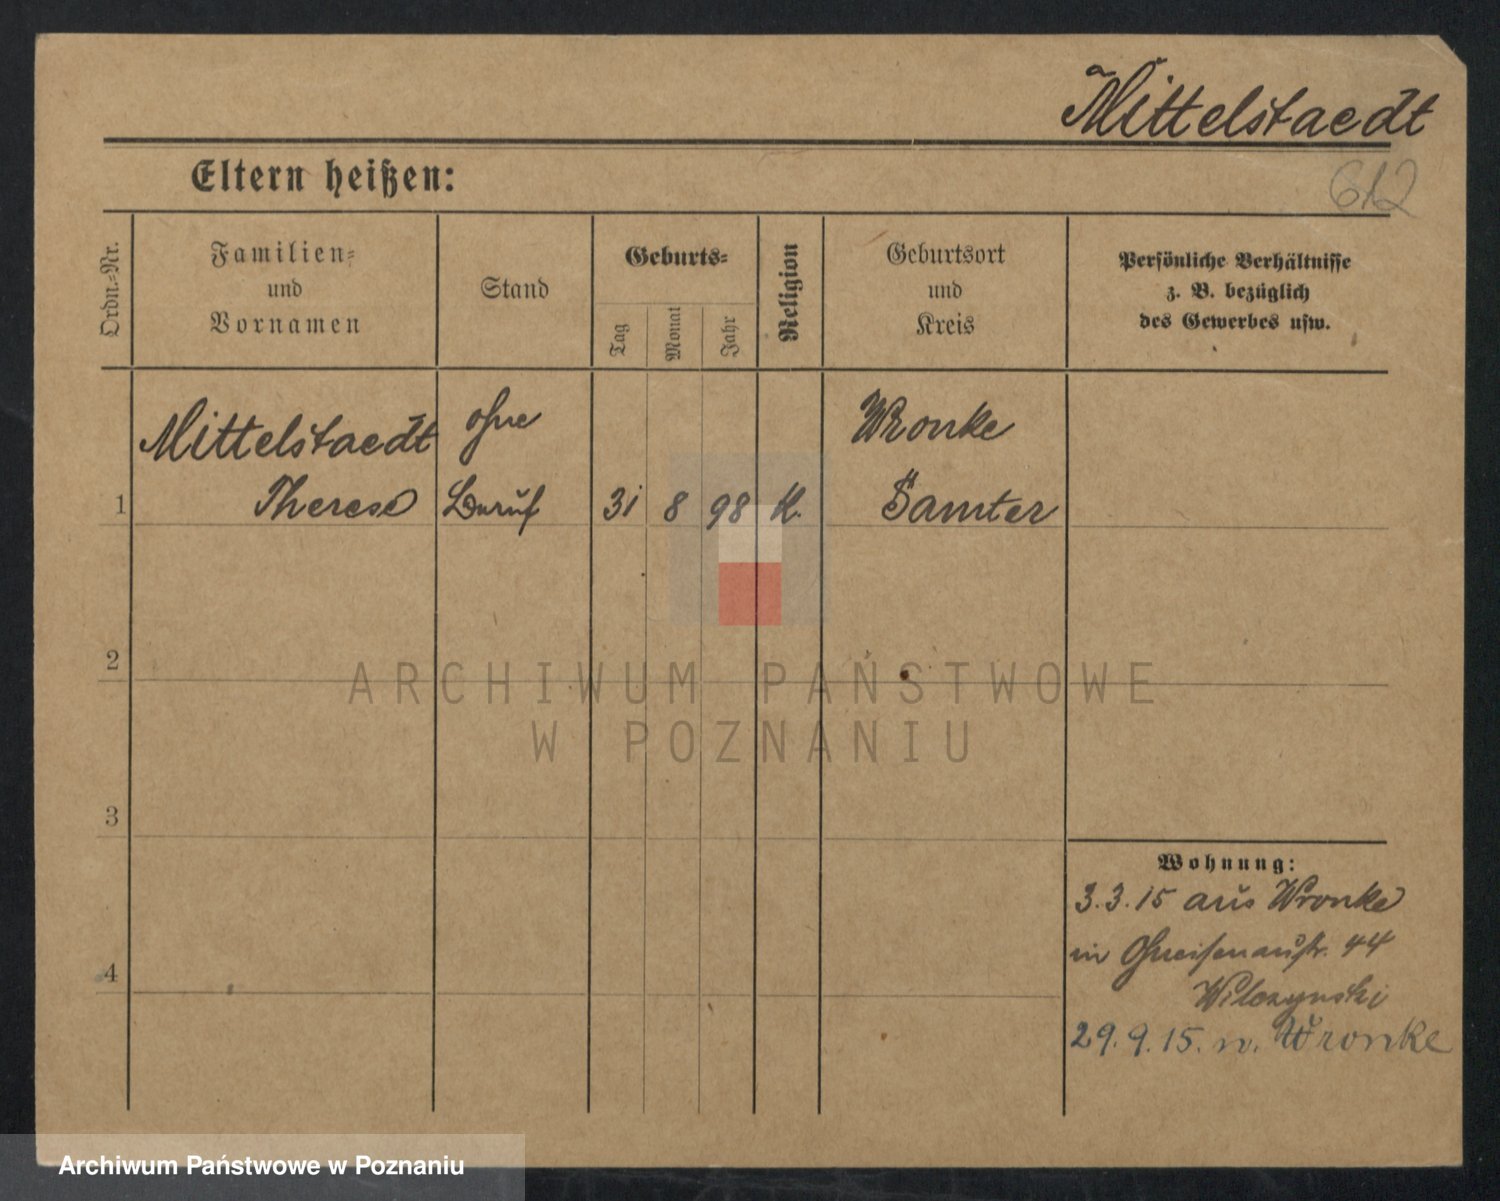 Mittelstaedt
Eltern heißen:
612
Ordn.-Nr.
Familien-
und
Vornamen
Stand
Geburts-
Tag
Monat
Jahr
Religion
Geburtsort
und
Kreis
Persönliche Verhältnisse
z. B. bezüglich
des Gewerbes usw.
Mittelstaedt ohne Wronke
1 Therese Beruf 31 8 98 K. Samter
2
ARCHIWUM PAŃSTWOWE
W POZNANIU
3
Wohnung:
3.3.15 aus Wronke
in Gneisenaustr. 44
4
Wilczynski
29.9.15. n. Wronke
Archiwum Państwowe w Poznaniu